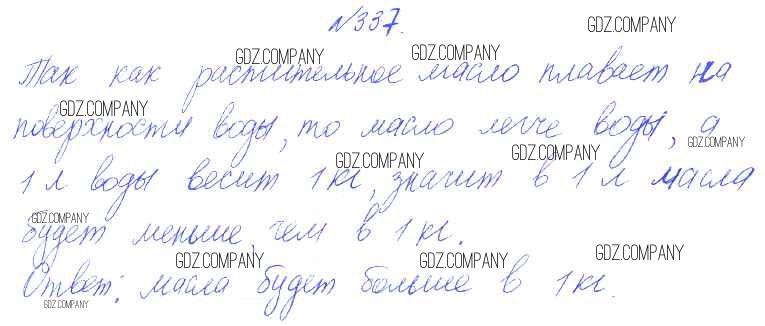 №337.
Так как растительное масло плавает на
поверхности воды, то масло легче воды, а
1 л воды весит 1 кг, значит в 1 л масла
будет меньше чем в 1 кг.
Ответ: масла будет больше в 1 кг.
GDZ.COMPANY
GDZ.COMPANY
GDZ.COMPANY
GDZ.COMPANY
GDZ.COMPANY
GDZ.COMPANY
GDZ.COMPANY
GDZ.COMPANY
GDZ.COMPANY
GDZ.COMPANY
GDZ.COMPANY
GDZ.COMPANY